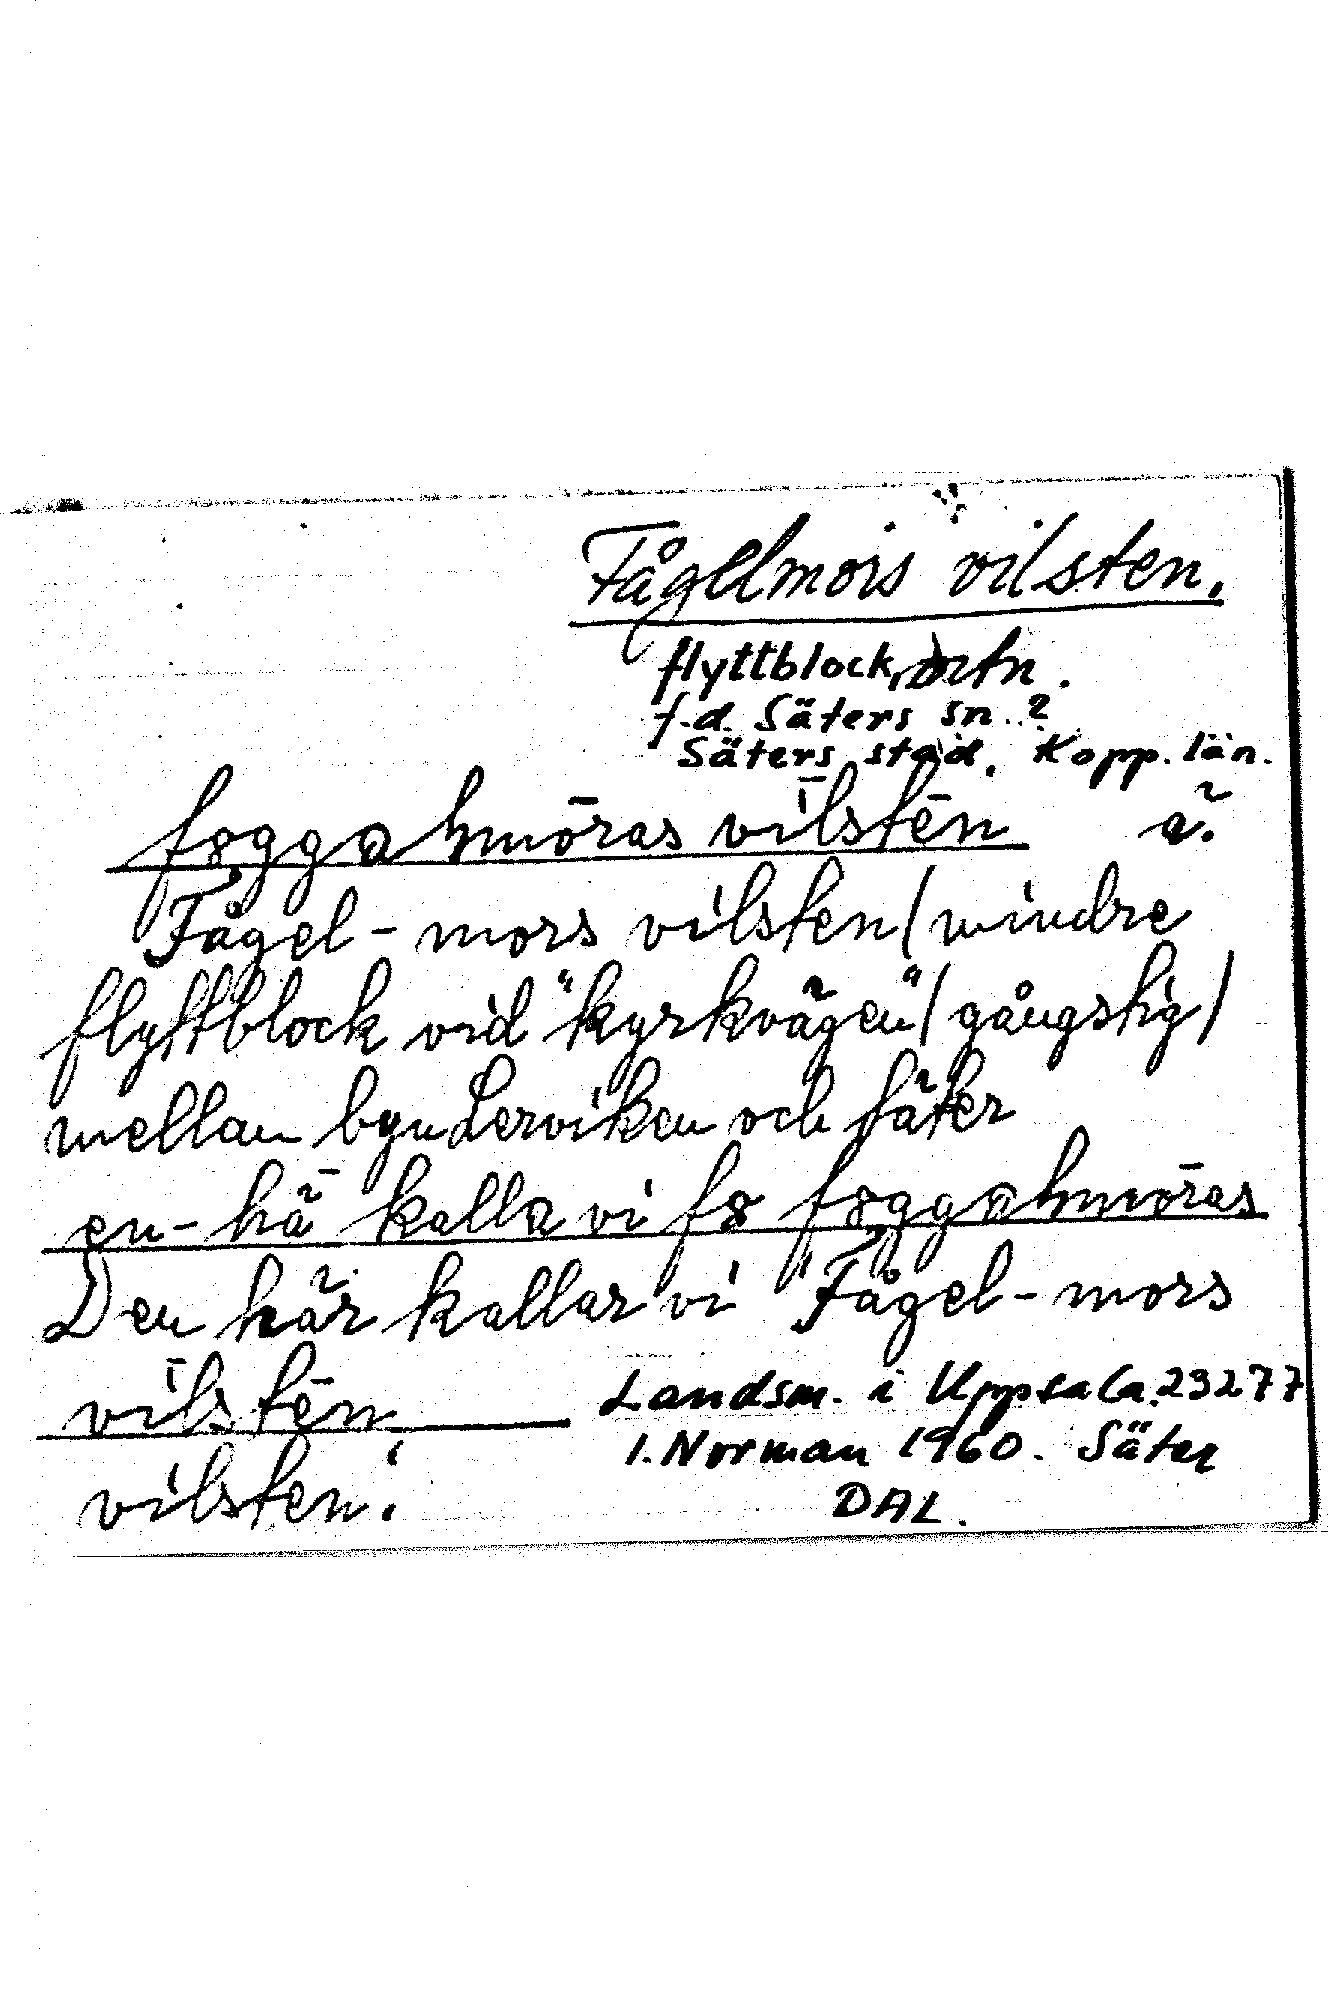 Fågelmors vilsten.
flyttblock, ortn.
f.d. Säters sn. ?
Säters stad. Kopp. län.
vīlstēn ä.
Fågel-mors vilsten (mindre
flyttblock vid "kyrkvägen" (gångstig)
mellan byn Lerviken och Säter
en-hä kalla vi
Den här kallar vi 'Fågel-mors
vīlstēn
vilsten'.
Landsm. i Uppsala. 23277
I. Norman 1960. Säter
DAL.